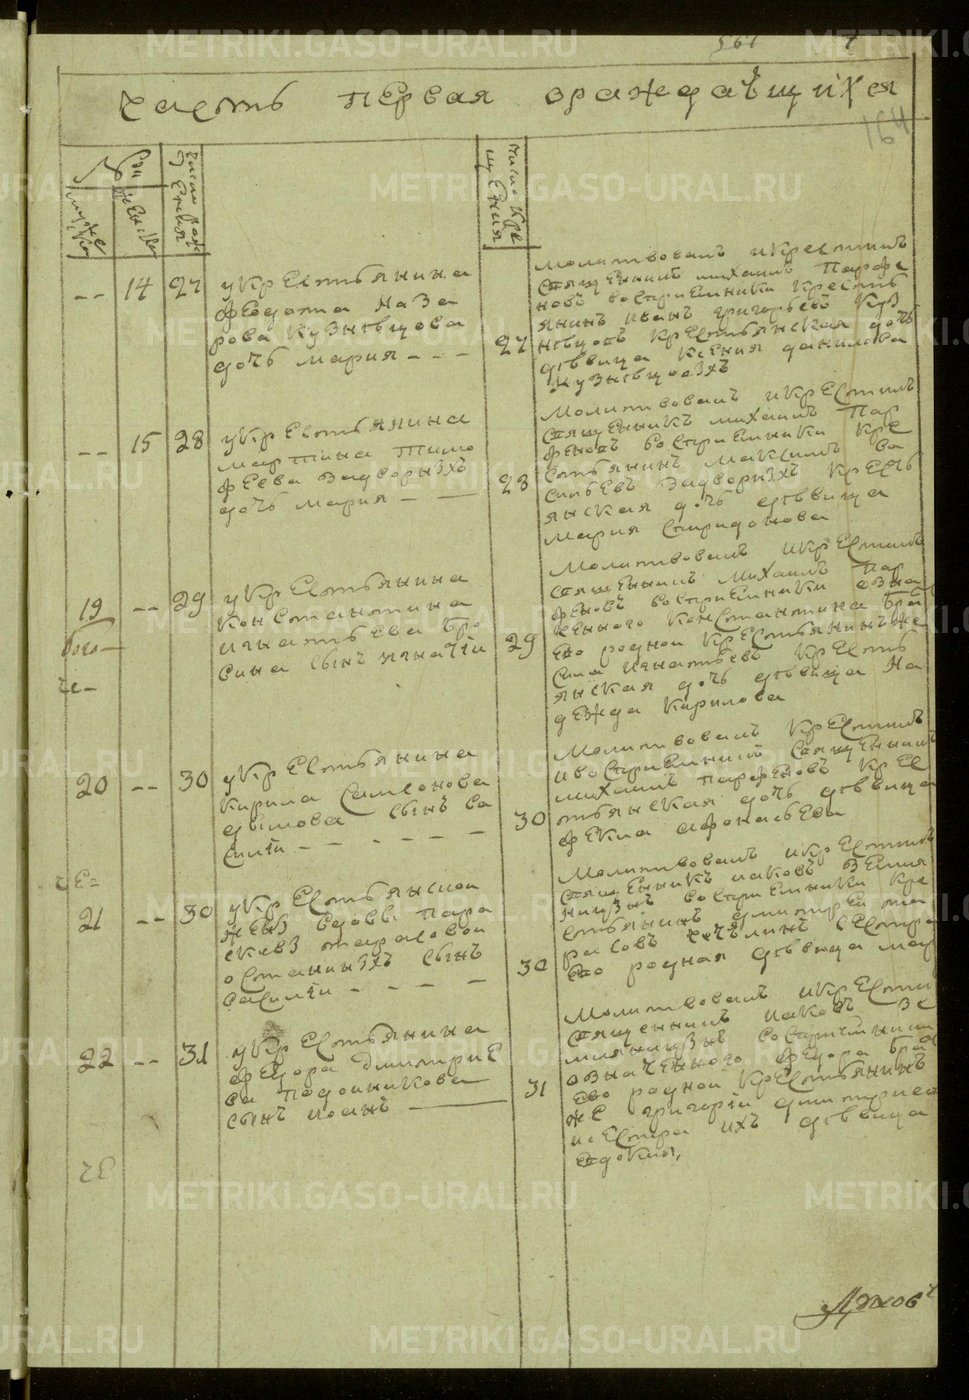 METRIKI.GASO-URAL.RU
561
часть первая ораждавщихся
164
-- 14 27 укрестьянина
федота Наза
рова Кузнѣцова
дочь мария - - -
27
молитвовалъ икрестилъ
священникъ михаилъ Парфе
новъ восприемники кресть
янинъ иванъ григорьевъ Куз
нѣцовъ крестьянская дочь
дѣвица ксения данилова
кузнѣцовахъ
-- 15 28 укрестьянина
мартина Тимо
феева Задворныхъ
дочь мария - -
28
молитвовалъ икрестилъ
священникъ михаилъ Пар
феновъ восприемники кре
стьянинъ максимъ Ва
сильевъ Задворныхъ кресть
янская дочь дѣвица
мария Спиридонова
19 -- 29 укрестьянина
константина
игнатьева бро
сина сынъ игнатiй
29
молитвовалъ икрестилъ
священникъ михаилъ Пар
феновъ восприемники озна
ченного константина бра
его родной крестьянинъ же
игнатьевъ кресть
янская дочь дѣвица На
дежда кирилова
20 -- 30 укрестьянина
кирила Самсонова
дымова сынъ Ва
силiй - - - - -
30
молитвовалъ крестилъ
ивосприемникъ священникъ
михаилъ парфеновъ кре
стьянская дочь дѣвица
фекла афонасьева
21 -- 30 укрестьянской
жены вдовы Пара
скевы тарасовой
останиныхъ сынъ
василiй - - - -
30
молитвовалъ икрестилъ
священникъ иаковъ Земля
ницынъ восприемники кре
стьянинъ димитрей та
расовъ сестра
его родная дѣвица мар
22 -- 31 укрестьянина
федора Димитрие
ва Подойникова
сынъ иоанъ
31
молитвовалъ икрести
священникъ иаковъ Зе
мляницынъ восприемники
означенного федора бра
его родной крестьянинъ
же григорiй димитриев
исестра ихъ дѣвица
евдокия,